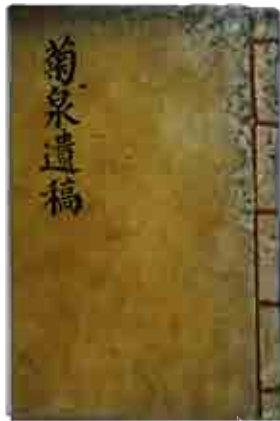 菊泉遺稿